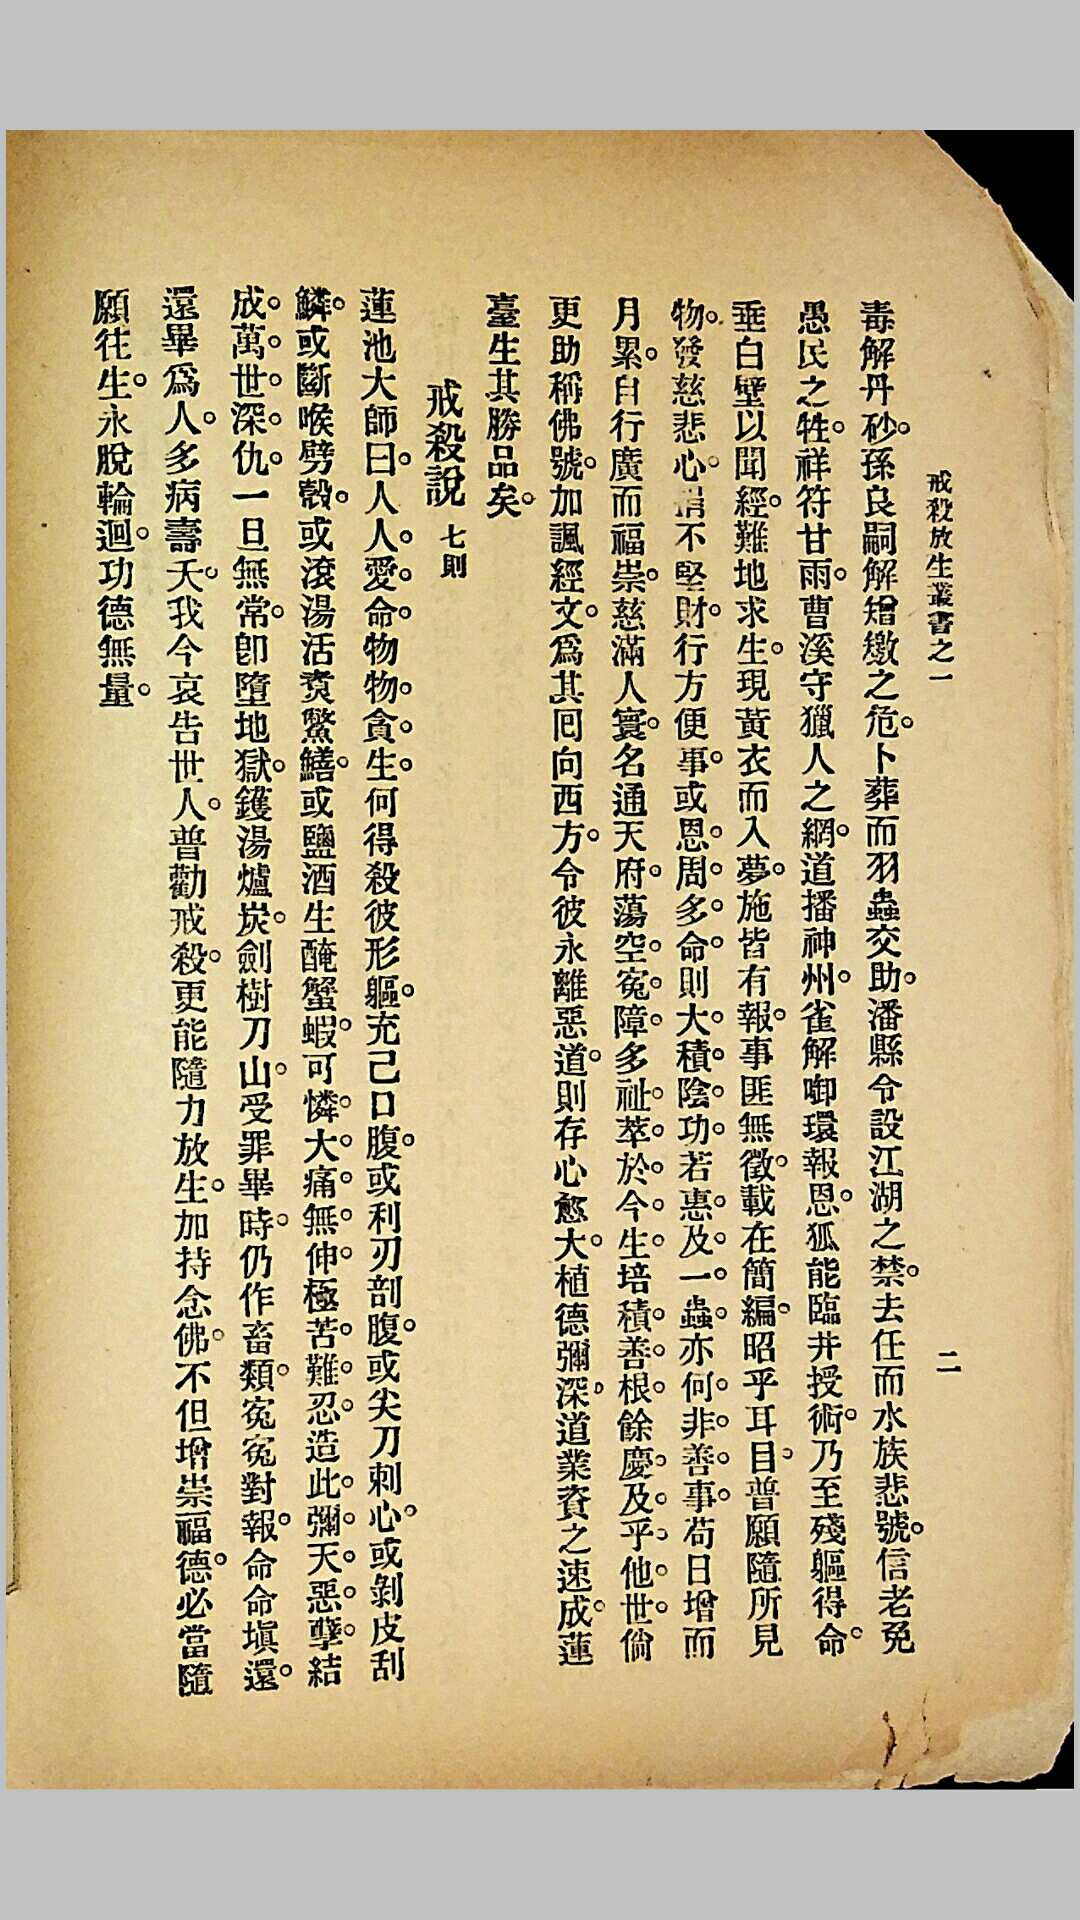 戒殺放生叢書之一
二
毒解丹砂。孫良嗣解矰繳之危。卜葬而羽蟲交助。潘縣令設江湖之禁。去任而水族悲號。信老免
愚民之牲。祥符甘雨。曹溪守獵人之網。道播神州。雀解啣環報恩。狐能臨井授術。乃至殘軀得命。
垂白壁以聞經。難地求生。現黃衣而入夢。施皆有報。事匪無徵。載在簡編。昭乎耳目。普願隨所見
物。發慈悲心。捐不堅財。行方便事。或恩周多命。則大積陰功。若惠及一蟲。亦何非善事。苟日增而
月累。自行廣而福崇。慈滿人寰。名通天府。蕩空寃障。多祉萃於今生。培積善根。餘慶及乎他世。倘
更助稱佛號。加諷經文。爲其囘向西方。令彼永離惡道。則存心愈大。植德彌深。道業資之速成。蓮
臺生其勝品矣。
戒殺説 七則
蓮池大師曰。人人愛命。物物貪生。何得殺彼形軀。充己口腹。或利刃剖腹。或尖刀刺心。或剝皮刮
鱗。或斷喉劈殼。或滾湯活煑鱉鱔。或鹽酒生醃蟹蝦。可憐大痛無伸。極苦難忍。造此彌天惡孽。結
成萬世深仇。一旦無常。卽墮地獄。鑊湯爐炭。劍樹刀山。受罪畢時。仍作畜類。寃寃對報。命命塡還。
還畢爲人。多病壽夭。我今哀告世人。普勸戒殺。更能隨力放生。加持念佛。不但增崇福德。必當隨
願往生。永脫輪迴。功德無量。